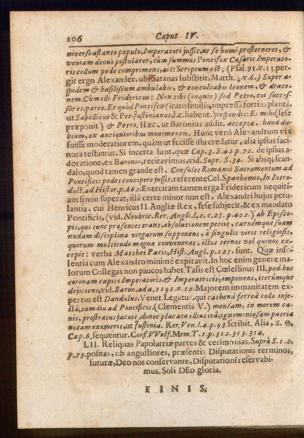 106 Caput IV.
niverso astante populo, Imperatori jussit, ut se humi prosterneret, &
veniam denuò postularet, cum summus Pontifex Cæsaris Imperato-
ris collum pede comprimens, ait: Scriptum est, (Psal. 91. v. 13. per-
git ergo Alexander, ubi Satanas substitit, Matth. 4. v. 6.) Super a-
spidem & basiliscum ambulabis, & conculcabis leonem, & draco-
nem. Cum illi Fridericus: Non tibi (inquit) sed Petro, cui succes-
sor
ut Sabellicus & Pet: Justinianus, ac habent. Et mihi (sese
præponit) & Petro. Hæc, ut Baronius addit, accepta, haud du-
bium, ex antiquioribus monimentis. Hunc verò Alexandrum vix
fuisse moderatiorem, quàm ut fecisse ista credatur, alia ipsius fac-
nora testantur. Si incerta sunt, quæ Cap. 3. S. 41. p. 32. de ipsius a-
doratione, ex Baronio, recitavimus, vid. Supr. S. 34. Si absq; scan-
dalo, quod tamen grande est. Consules Romani Sacramentum ad
Pontificis pedes concepere jussit, referente Cel. Spanhemio, In Intro-
duct. ad Histor. p. 662. Exercitam tamen erga Fridericum nequiti-
am sinon superat, illi certe minor non est, Alexandri hujus petu-
lantia, cui Henricus II. Angliæ Rex, sese subjecit. Rex mandato
Pontificis, (vid. Neubric. Rer. Angl. l. 2. c. 25. p. 402.) ab Episco-
pis, qui tunc præsentes erant, absolutionem petiit, carnémque suam
nudam disciplinæ virgarum supponens, à singulis viris religiosis,
quorum multitudo magna convenerat, ictus ternos vel quinos ex-
cepit: verba Matthæi Paris, Hist: Angl. p. 125. sunt. Quæ inso-
lentia cum Alexandro minimè expiravit. In hoc enim genere ma-
jorum Collegas non paucos habet. Talis est Cœlestinus III. pedibus
coronam capiti Imperatoris, & Imperatricis, imponens, iterumque
dejiciens, vid. Baron. ad a. 1191. n. 10. Majorem immanitatem ex-
pertus est Dandulus, Venet. Legatus, qui
canis, prostratus jacuit, donec placato illius ira, ignominiosam patriæ
notam exemerit, ut Justinia. Rer. Ven. l. 4. p. 93. scribit. Alia,
Cap. 6. sequentur. Conf. Wulf. Mem. T. 1. p. 312. 313. 314.
LII. Reliquas Papolatriæ partes & cerimonias, Supra S. 1. 2.
p. 73. positas, ob angustiores, præsentis Disputationis terminos,
futuræ, Deo nos conservante, Disputationi reservabi-
mus. Soli DEo gloria.
F I N I S.